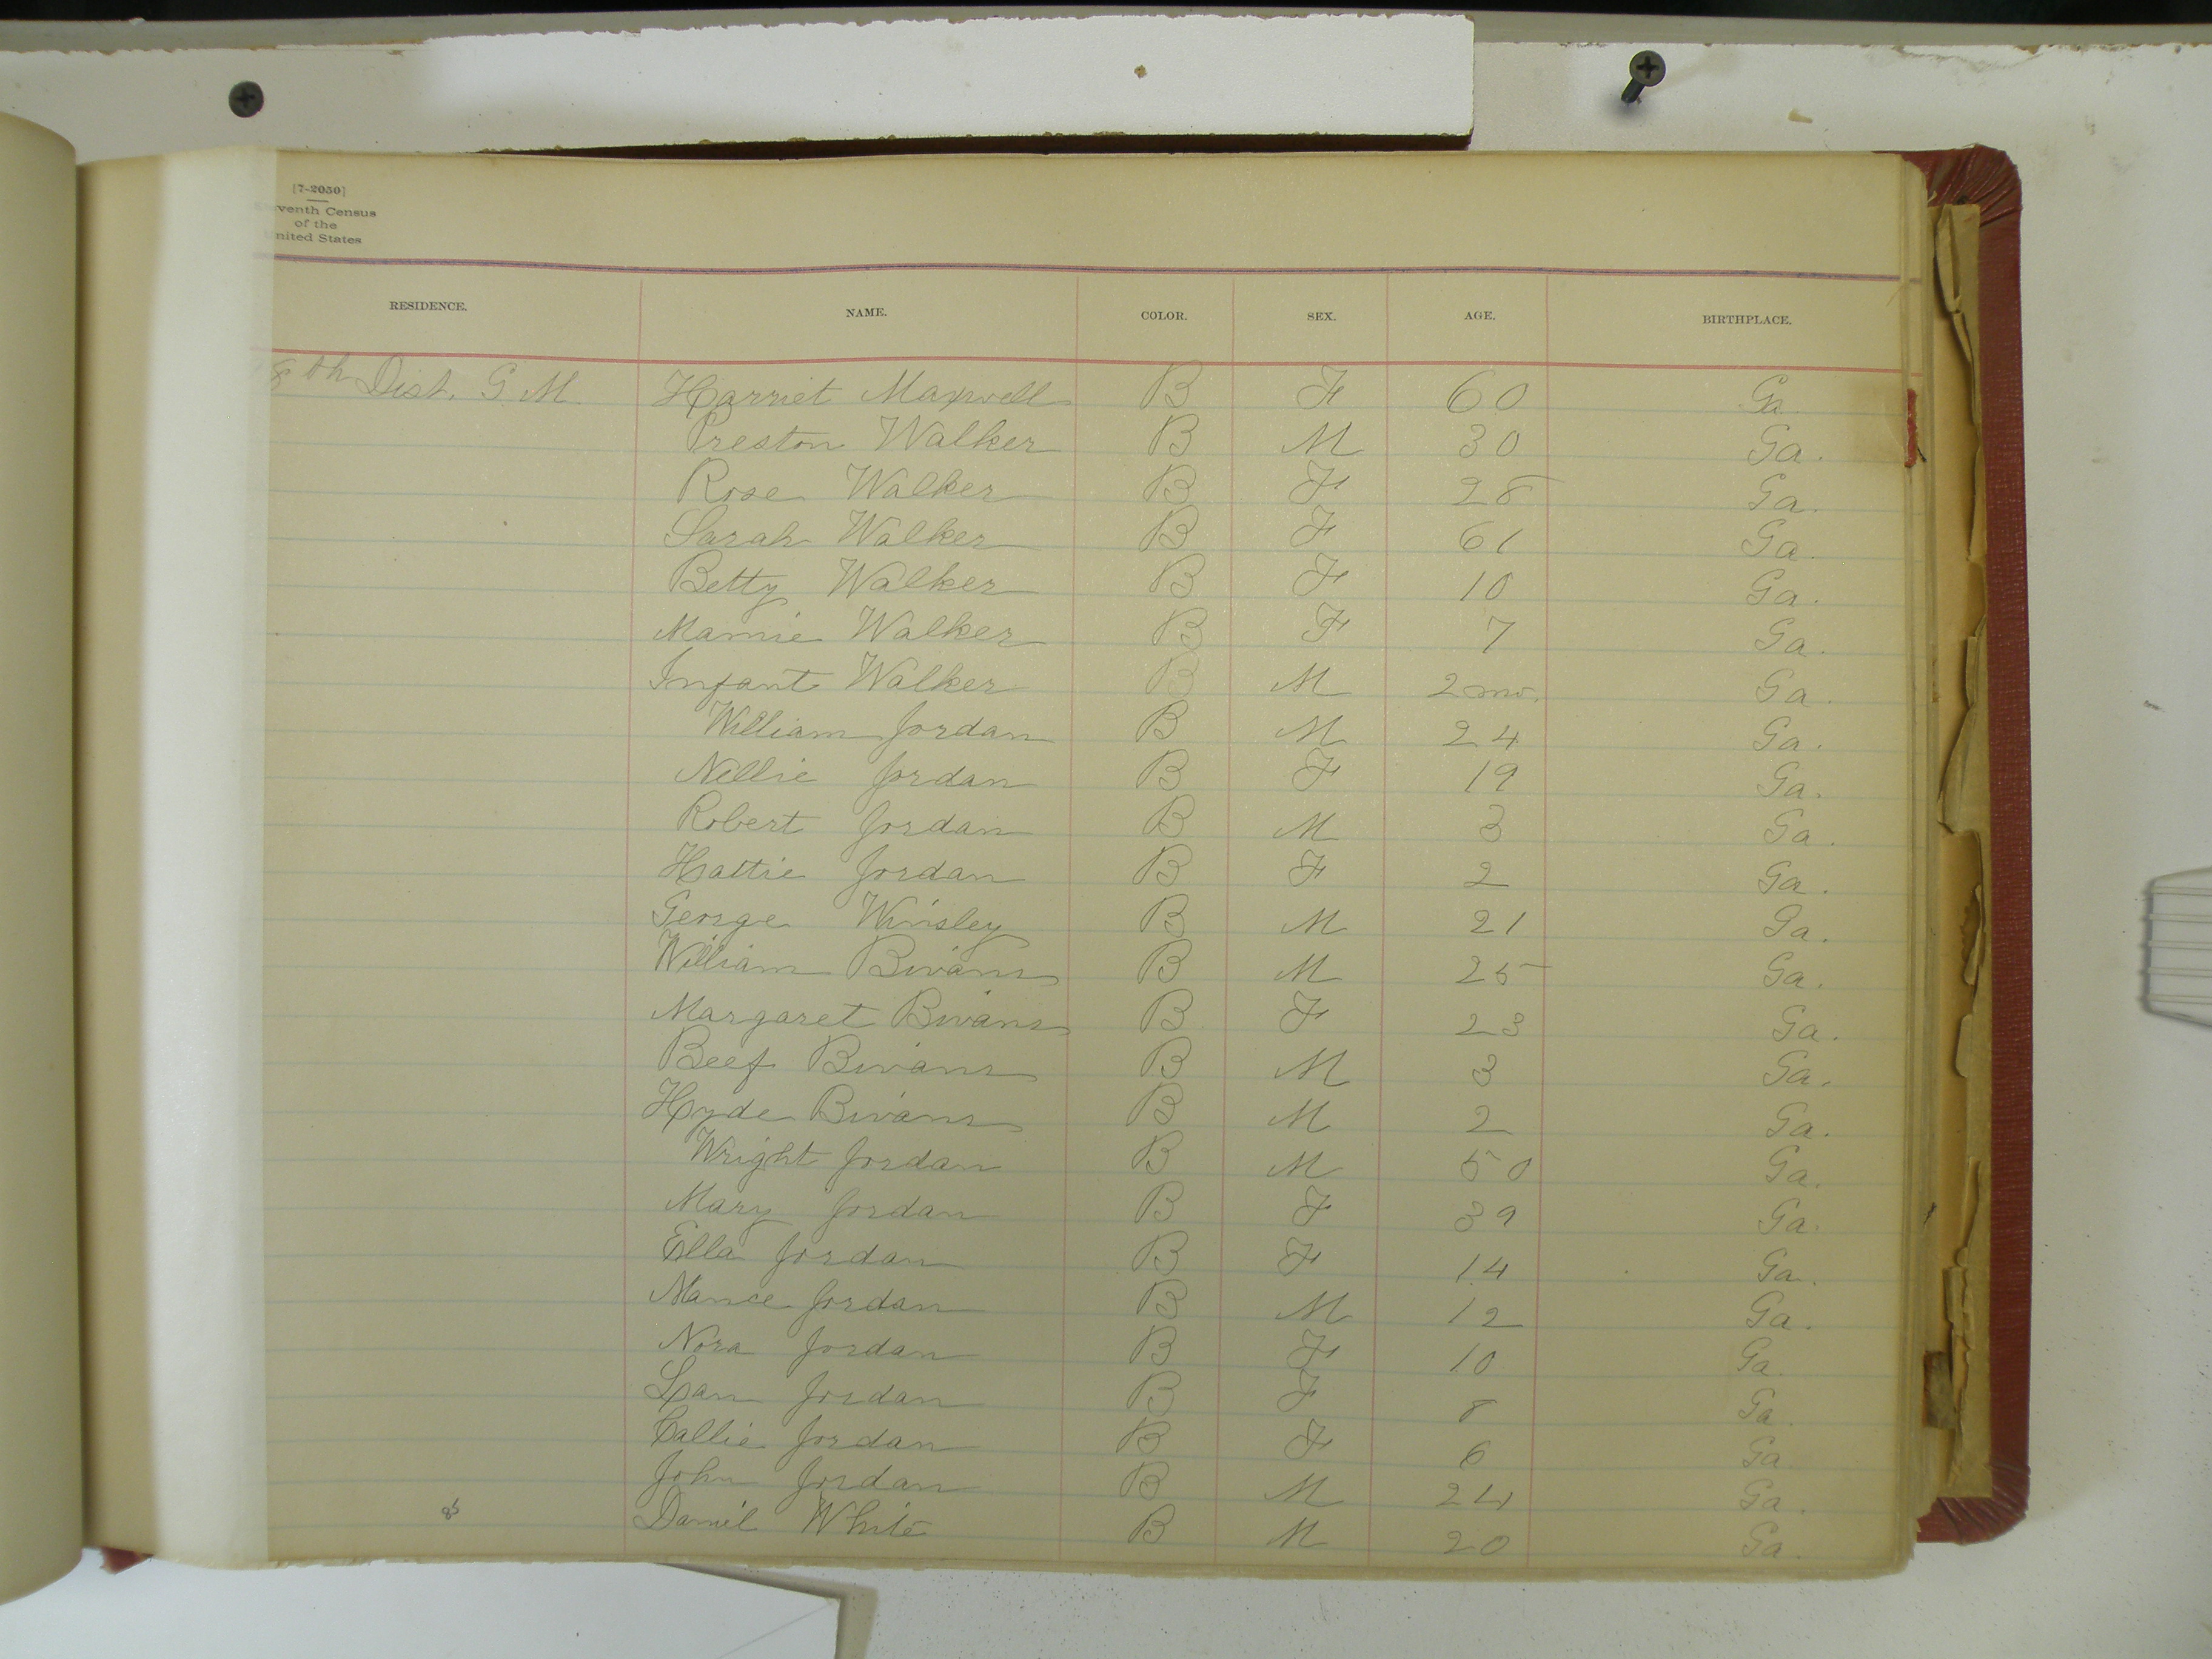 [7-2050]
venth Census
of the
nited States
RESIDENCE. NAME. COLOR. SEX. AGE. BIRTHPLACE.
8th Dist. G. M. Harriet Maxwell B F 60 Ga.
Preston Walker B M 30 Ga.
Rose Walker B F 28 Ga.
Sarah Walker B F 61 Ga.
Betty Walker B F 10 Ga.
Mamie Walker B F 7 Ga.
Infant Walker B M 2 mo. Ga.
William Jordan B M 24 Ga.
Nellie Jordan B F 19 Ga.
Robert Jordan B M 3 Ga.
Hattie Jordan B F 2 Ga.
George Winsley B M 21 Ga.
William Bivans B M 25 Ga.
Margaret Bivans B F 23 Ga.
Beef Bivans B M 3 Ga.
Hyde Bivans B M 2 Ga.
Wright Jordan B M 50 Ga.
Mary Jordan B F 39 Ga.
Ella Jordan B F 14 Ga.
Mance Jordan B M 12 Ga.
Nora Jordan B F 10 Ga.
Jordan B F 8 Ga.
Callie Jordan B F 6 Ga
John Jordan B M 24 Ga.
Daniel White B M 20 Ga.